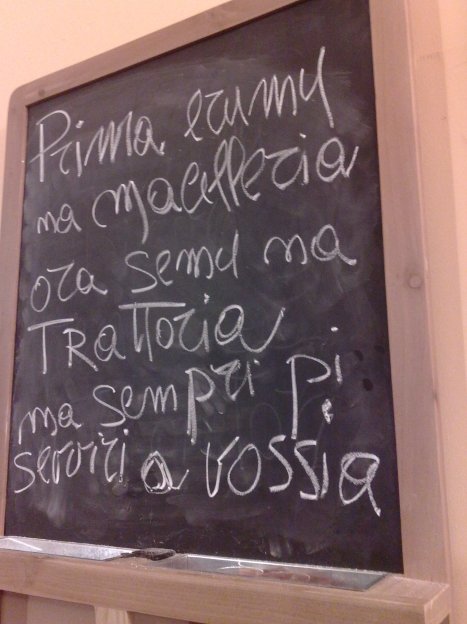 Prima erumu
na macelleria
ora semu na
TRaTToria
ma sempri pi
serviri a vossia